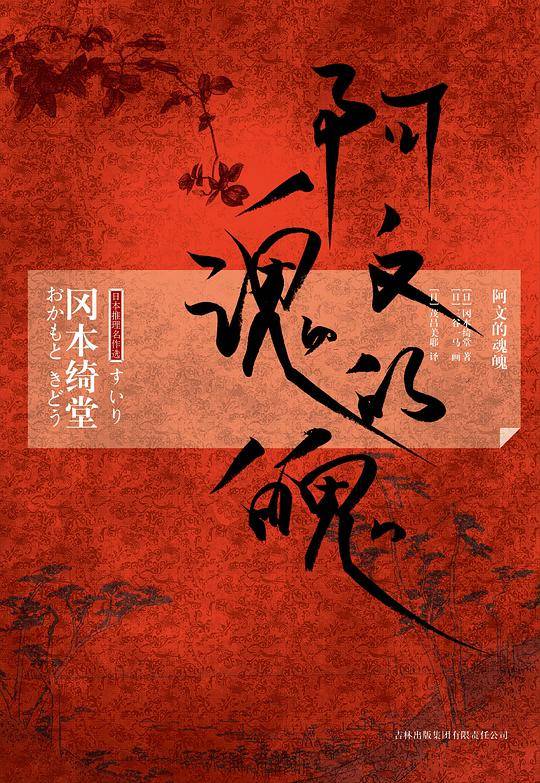 阿文的
魂魄
阿文的魂魄
[日] 冈本绮堂 著
[日] 三谷一马 画
[日] 茂吕美耶 译
日本推理名作选
すいり
冈本绮堂
おかもと きどう
吉林出版集团有限责任公司